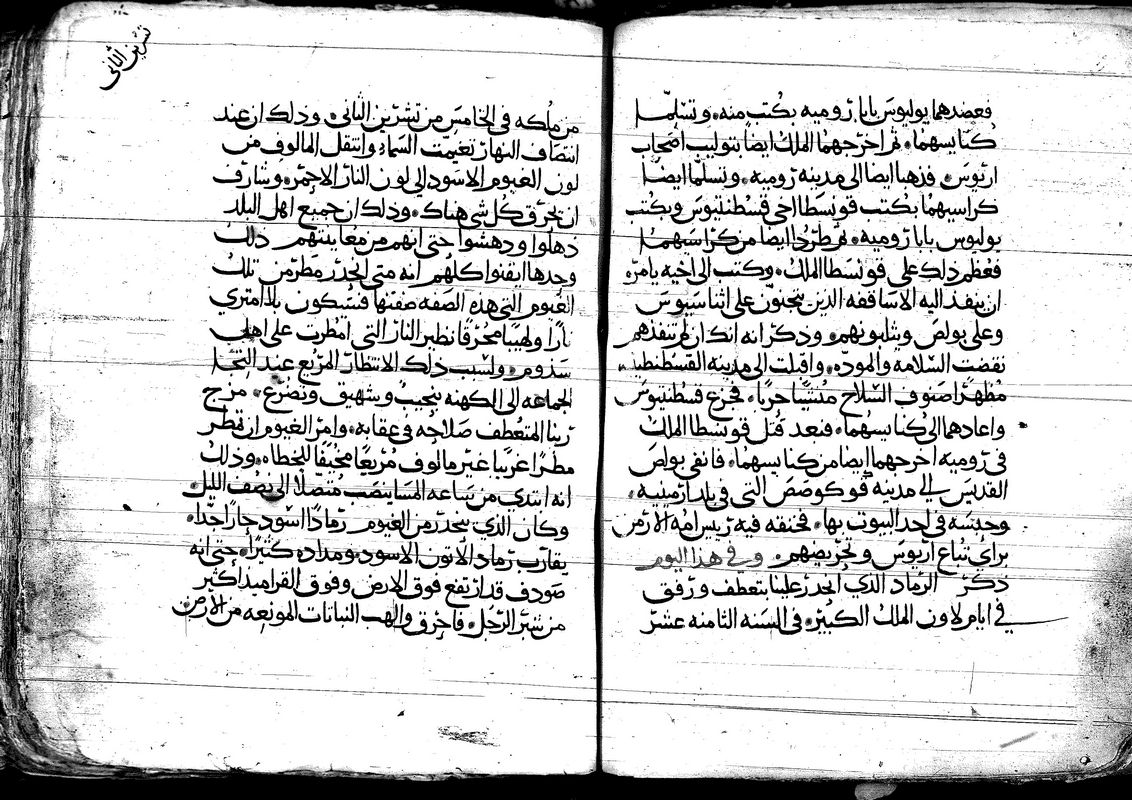 فعضدهما يوليوس بابا رومية بكتب منه. وتسلما
كنايسهما. ثم اخرجهما الملك ايضاً بتوليب اصحاب
اريوس. فذهبا ايضا الى مدينة رومية. وتسلما ايضاً
كراسيهما بكتب قونسطا اخي قسطنتيوس وبكتب
يوليوس بابا رومية. ثم طردا ايضا من كراسيهما
فعظم ذلك على قونسطا الملك. وكتب الى اخيه يامره
ان ينفذ اليه الاساقفه الذين يتجنون على اثناسيوس
وعلى بولص ويثلبونهم. وذكر انه انك ان لم تنفذهم
نقضت السلامة والمودة. واقبلت الى مدينة القسطنطينيه
مظهرا صنوف السلاح حربا. فجزع قسطنتيوس
واعادهما الى كنايسهما. فبعد قتل قونسطا الملك
في رومية اخرجهما ايضا من كنايسهما. فانفي بولص
القديس الى مدينة قوكوصص التي في بلد ارمينية.
وحبسه في احد البيوت بها. فخنقه فيه ريس امة الارمن
براي تباع اريوس وتحريضهم. وفي هذا اليوم
ذكر الرماد الذي انحدر علينا بتعطف ورفق
في ايام لاون الملك الكبير. في السنه الثامنه عشر
تشرين الثاني
من ملكه في الخامس من تشرين الثاني. وذلك ان عند
انتصاف النهار تغيمت السماء وانتقل المالوف من
لون الغيوم الاسود الى لون النار الاحمر. وشارف
ان يحرق كل شي هناك. وذلك ان جميع اهل البلد
ذهلوا ودهشوا حتى انهم من معاينتهم ذلك
وحدها ايقنوا كلهم انه متى انحدر مطر من تلك
الغيوم التي هذه الصفه صفتها فسيكون بلا امتري
نارا ولهيبا محرقا نظير النار التي امطرت على اهل
سدوم. ولسبب ذلك الانتظار المريع عند التجا
الجماعه الى الكهنه بنحيب وشهيق وتضرع. مزج
ربنا المتعطف صلاحه في عقابه. وامر الغيوم ان تمطر
مطرا غريبا غير مالوف مريعا مخيفا للخطاه. وذلك
انه ابتدي من ساعه المسا ينصب متصلا الى نصف الليل
وكان الذي ينحدر من الغيوم رمادا اسود حارا جدا.
يقارب رماد الاتون الاسود ومداده كثيرا. حتى انه
صودف قد ارتفع فوق الارض وفوق القراميد اكثر
من شبر الرجل. فاحرق والهب النباتات المونعه من الارض